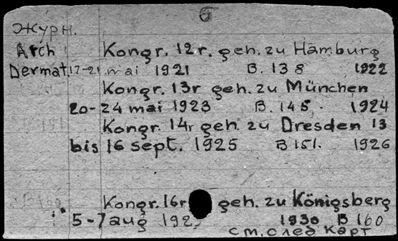 Журн.
Arch Kongr. 12r. geh. zu Hamburg
Dermat. 17-21 mai 1921 B. 138 1922
Kongr. 13r geh. zu München
20-24 mai 1923 B. 145, 1924
Kongr. 14r geh. zu Dresden 13
bis 16 sept. 1925 B 151. 1926
Kongr. 16r geh. zu Königsberg
5-7 aug 192 1930 B 160
См. след карт